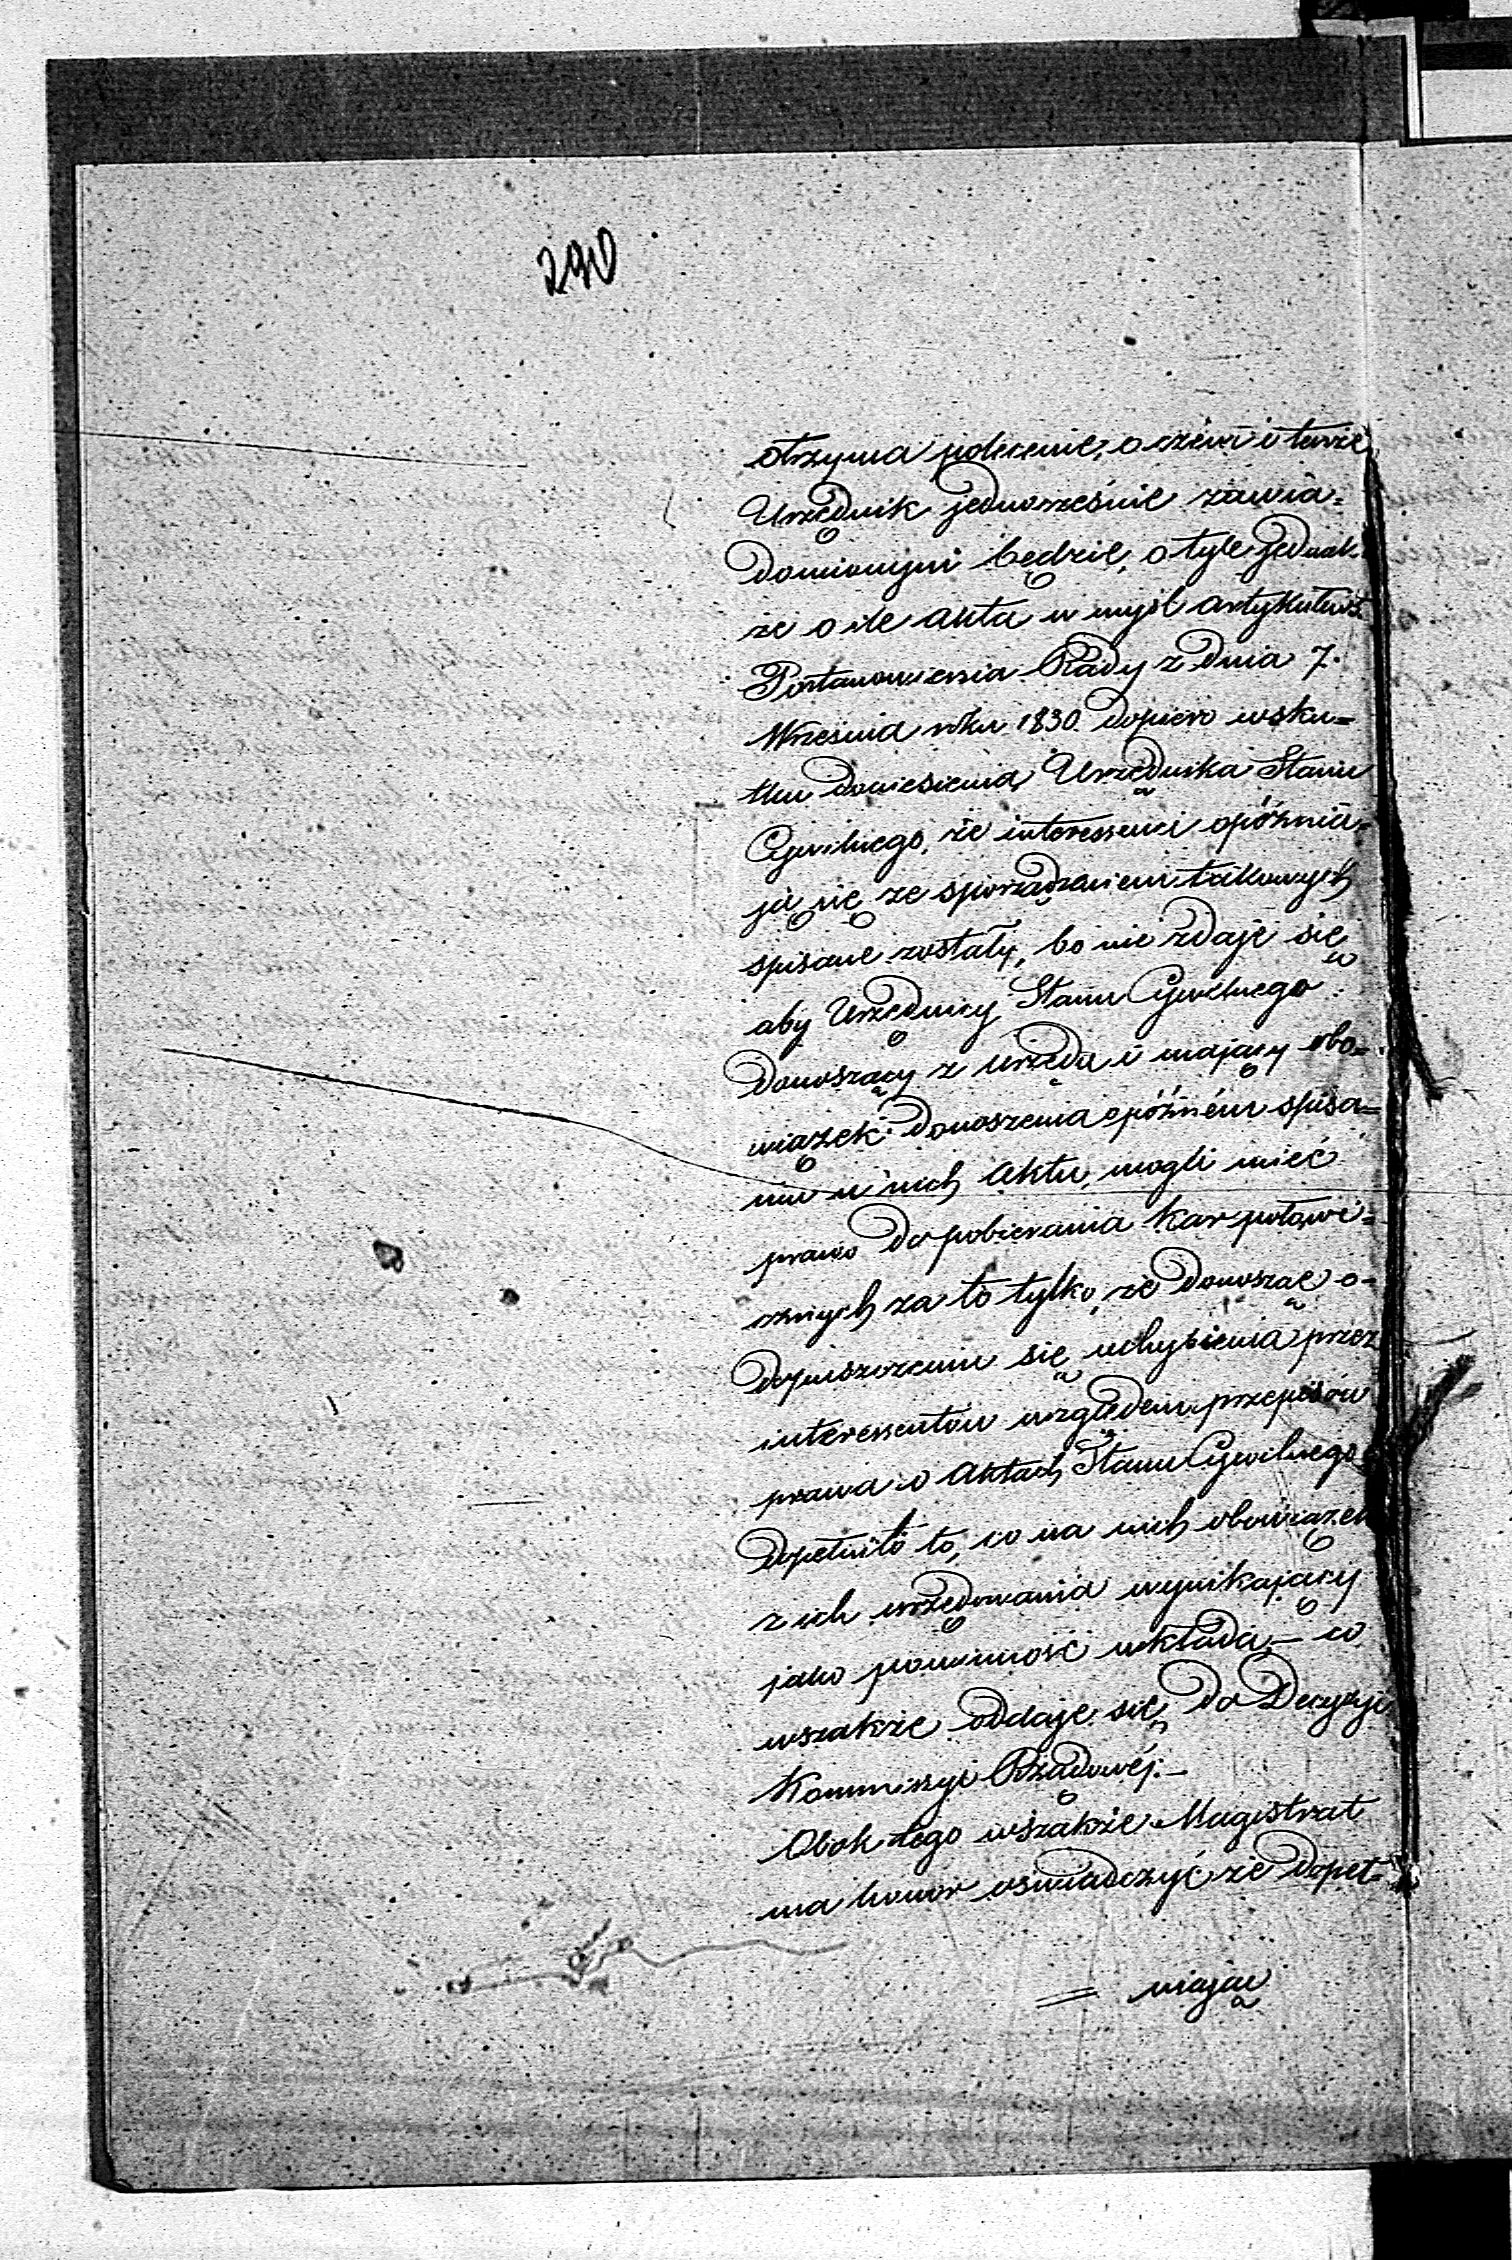 290
otrzyma polecenie, o czém i tenże
Urzędnik jednocześnie zawia=
domionym będzie, o tyle jednak
że o ile Akta w myśl artykułu
Postanowienia Rady z dnia 7.
Września roku 1830 dopiero wsku=
tku doniesienia Urzędnika Stanu
Cywilnego, że interessenci opóźnia=
ją się ze sporządzeniem takowych
spisane zostały, bo nie zdaje się
aby Urzędnicy Stanu Cywilnego
donoszący z urzędu i mający obo=
wiązek donoszenia o późném spisa=
niu u nich Aktu, mogli mieć
prawo do pobierania kar połowi=
cznych za to tylko, że donosząc o
dopuszczeniu się uchybienia przez
interessentów względem przepisów
prawa o Aktach Stanu Cywilnego
dopełnili to, co na nich obowiązek
z ich urzędowania wynikający
jako powinność wkłada, – co
wszakże oddaje się do Decyzji
Kommissyi Rządowéj. –
Obok tego wszakże Magistrat
ma honor oświadczyć że dopeł=
= niając